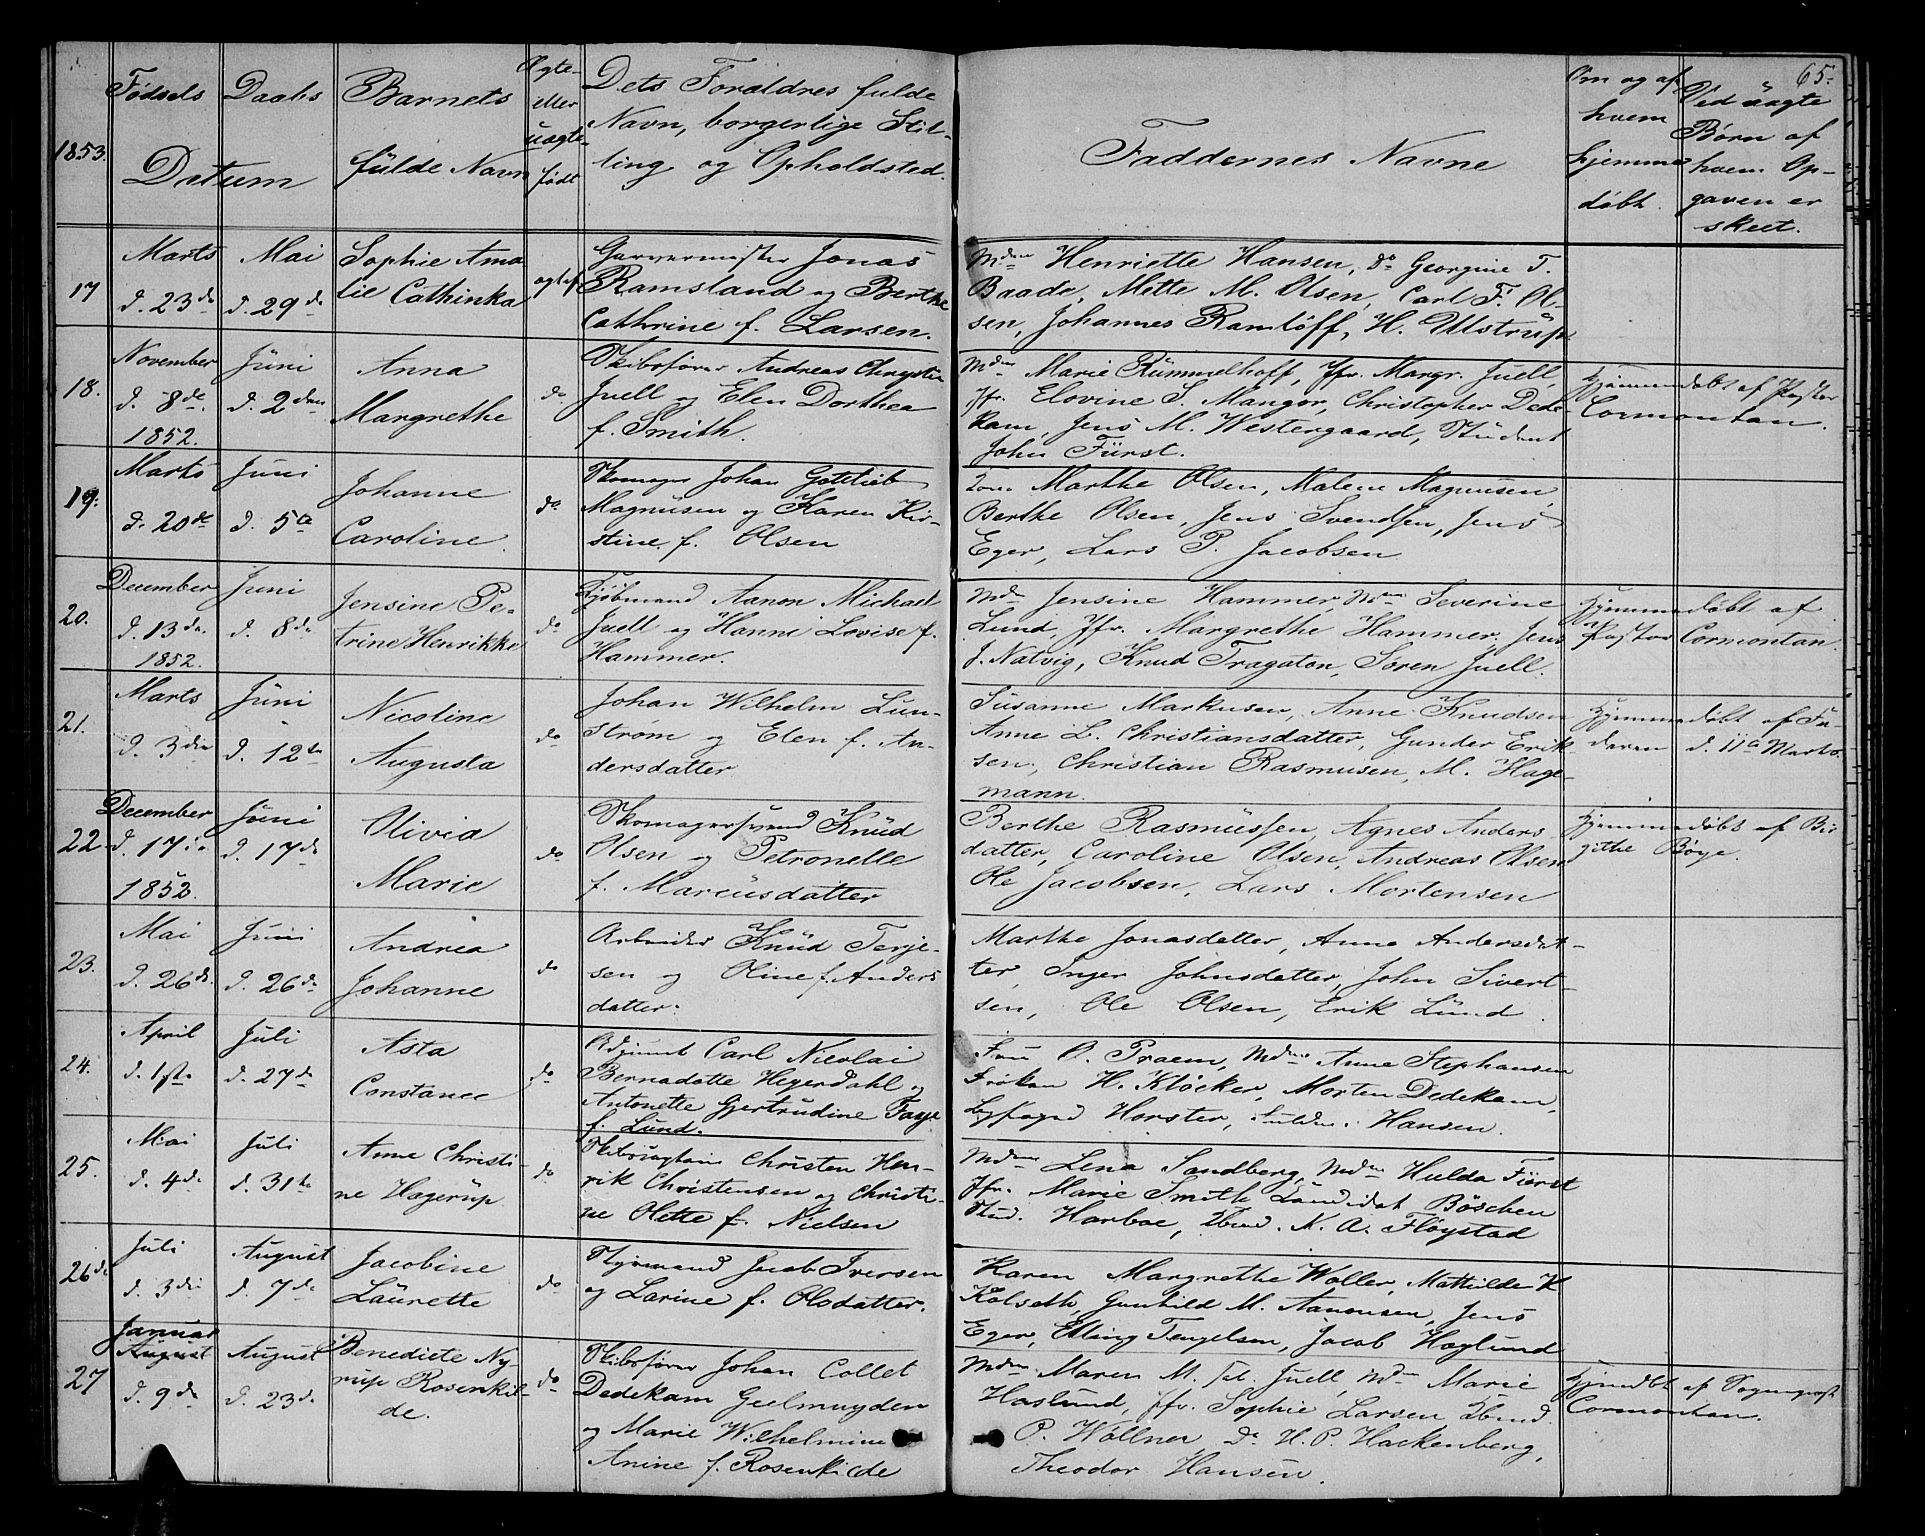 65.
1853.
Fødsels Daabs
Datum
Barnets
fulde Navn
Ægte-
eller
uægte-
født
Dets Forældres fulde
Navn, borgerlige Stil-
ling og Opholdsted.
Faddernes Navne
Om og af
hvem
hjemme
døbt.
Ved uægte
Børn af
hvem Op-
gaven er
skeet.
17
Marts
d. 23de
Mai
d. 29de
Sophie Ama
lie Cathinka
ægtef
Garvermester Jonas
Ramsland og Berthe
Cathrine f. Larsen.
Mdm Henriette Hansen, Do Georgine T.
Baade, Mette M. Olsen, Carl F. Ol-
sen, Johannes Ramløff, H. Ulstrup
18.
November
d. 8de
1852.
Juni
d. 2den
Anna
Margrethe
do
Skibsfører Andreas Chrystie
Juell og Elen Dorthea
f. Smith.
Mdm Marie Rummelhoff, Jfr. Margr. Juell,
Jfr. Elovine S. Mangor, Christopher Dede-
kam, Jens M. Westergaard, Student
John Fürst.
Hjemmedøbt af Pastor
Cormontan.
19.
Marts
d. 20de
Juni
d. 5te
Johanne
Caroline
do
Skomager Johan Gottlieb
Magnusen og Karen Kir-
stine f. Olsen
Marthe Olsen, Malene Magnusen
Berthe Olsen, Jens Svendsen, Jens
Eger, Lars P. Jacobsen
20.
December
d. 13de
1852.
Juni
d. 8de
Jensine Pe-
trine Henrikke
do
Kjøbmand Aanon Michael
Juell og Hanne Lovise f.
Hammer.
Mdm Jensine Hammer, Mdm Severine
Lund, Jfr. Margrethe Hammer, Jens
J. Natvig, Knud Tragaton, Søren Juell.
Hjemmedøbt af
Pastor Cormontan.
21.
Marts
d. 3die
Juni
d. 12te
Nicoline
Augusta
do
Johan Wilhelm Lun-
strøm og Elen f. An-
dersdatter
Susanne Markusen, Anne Knudsen
Anne L. Christiansdatter, Gunder Erik-
sen, Christian Rasmusen, M. Hage-
mann.
Hjemmedøbt af Fa-
deren d. 11te Marts.
22
December
d. 17de
1852.
Juni
d. 17de
Olivia
Marie
do
Skomagersvend Knud
Olsen og Petronelle
f. Marcusdatter
Berthe Rasmussen, Agnes Anders
datter, Caroline Olsen, Andreas Olsen
Ole Jacobsen, Lars Mortensen
Hjemmedøbt af Bir
githe Bøye.
23.
Mai
d. 26de
Juni
d. 26de
Andrea
Johanne
do
Arbeider Knud Terje-
sen og Oline f. Anders
datter.
Marthe Jonasdatter, Anne Andersdat-
ter, Inger Johnsdatter, John Sivert-
sen, Ole Olsen, Erik Lund.
24.
April
d. 1ste
Juli
d. 27de
Asta
Constance
do
Adjunct Carl Nicolai
Bernadotte Hegerdahl og
Antonette Gjertrudine Faye
f. Lund.
Fru O. Praem, Mdme Anne Stephansen
Frøken H. Kløcker, Morten Dedekam,
Byfoged Horster, Hansen.
25.
Mai
d. 4de
Juli
d. 31te
Anne Christi-
ne Hagerup
do
Skibscaptain Christen Hen-
rik Christensen og Christi-
ne Olette f. Nielsen
Mdm Lena Sandberg, Mdm Hulda Fürst
Jfr. Marie Smith Candidat Böschen
Stud. Harboe, Kbmd. N. A. Fløystad
26de
Juli
d. 3die
August
d. 7de
Jacobine
Laurette
do
Styrmand Jacob Iversen
og Larine f. Olsdatter.
Karen Margrethe Woller, Mathilde K
Kolseth, Gunhild M. Aanonsen, Jens
Eger, Elling Tengelsen, Jacob Hoglund
27
Januar
August
d. 9de
August
d. 23de
Benedicte Ny-
rup Rosenkil-
de.
do
Skibsfører Johan Collet
Dedekam Geelmuyden
og Marie Wilhelmine
Anine f. Rosenkilde
Mdm Maren M. Juell, Mdm Marie
Haslund, Jfr. Sophie Larsen Kbmd.
P. Wollner, Do H. P. Hackenberg,
Theodor Hansen.
Hjemdbt af Sognepræst
Cormontan.